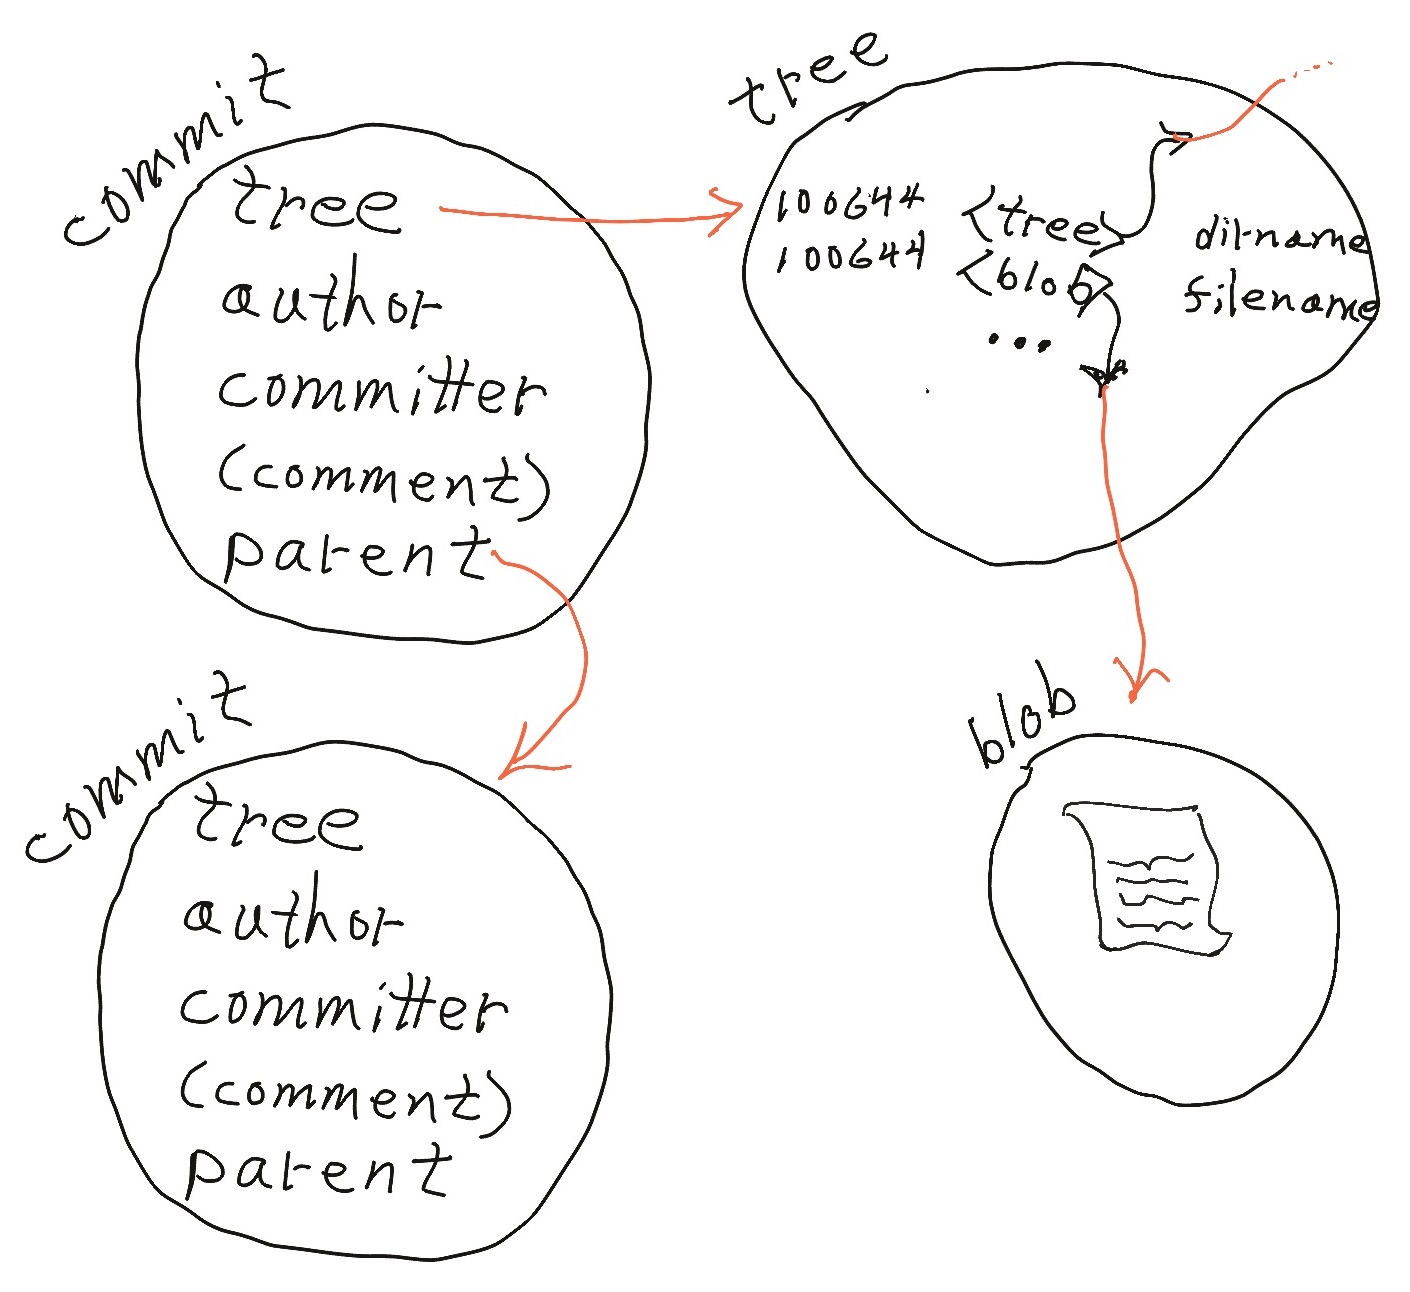 commit
tree
author
committer
(comment)
parent
tree
100644 <tree> dirname
100644 <blob> filename
...
commit
tree
author
committer
(comment)
parent
blob